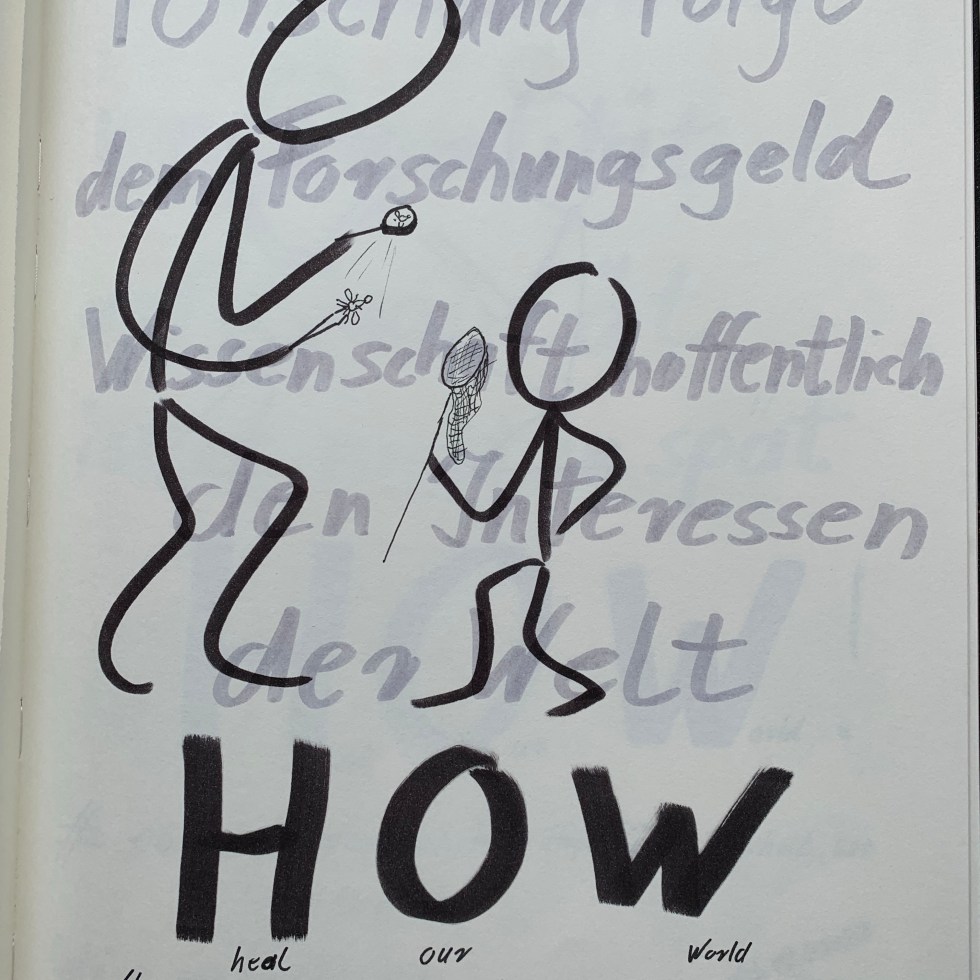 Forschung folge
dem Forschungsgeld
Wissenschaft hoffentlich
den Interessen
der Welt
HOW
heal our World